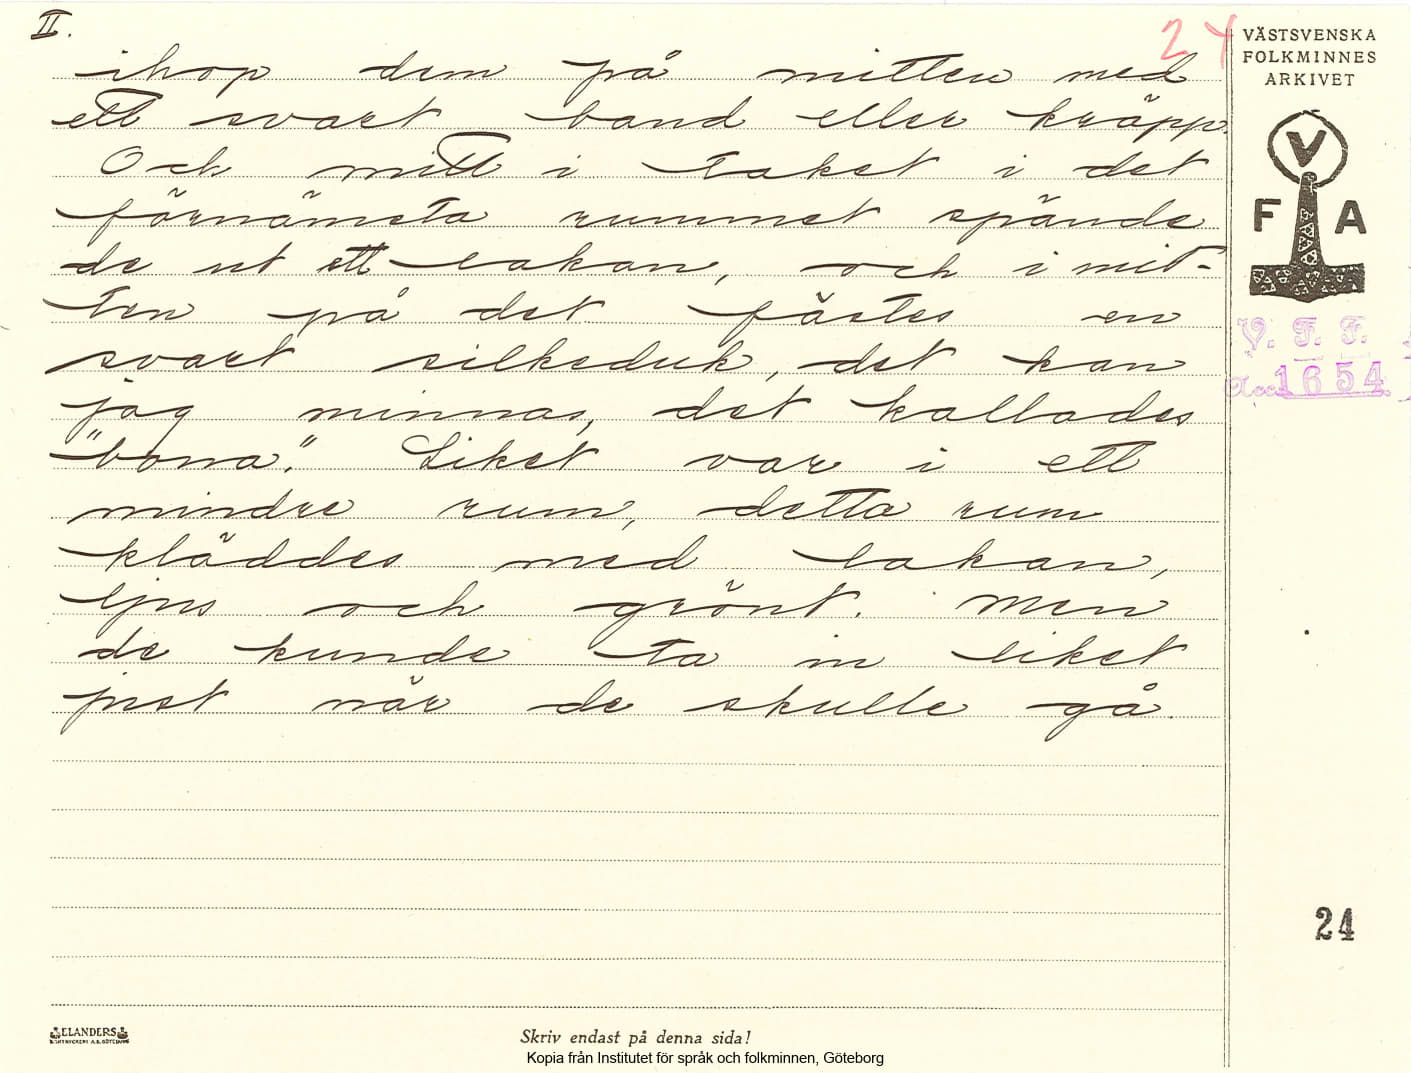 II.
24
ihop dem på mitten med
ett svart band eller kräpp.
Och mitt i taket i det
förnämsta rummet spände
de ut ett lakan, och i mit-
ten på det fästes en
svart silkeduk, det kan
jag minnas, det kallades
"bona". Liket var i ett
mindre rum, detta rum
kläddes med lakan,
ljus och grönt. Men
de kunde ta in liket
just när de skulle gå.
VÄSTSVENSKA
FOLKMINNES
ARKIVET
V
F A
V. F. F.
Acc. 1654
24
ELANDERS
Skriv endast på denna sida!
Kopia från Institutet för språk och folkminnen, Göteborg